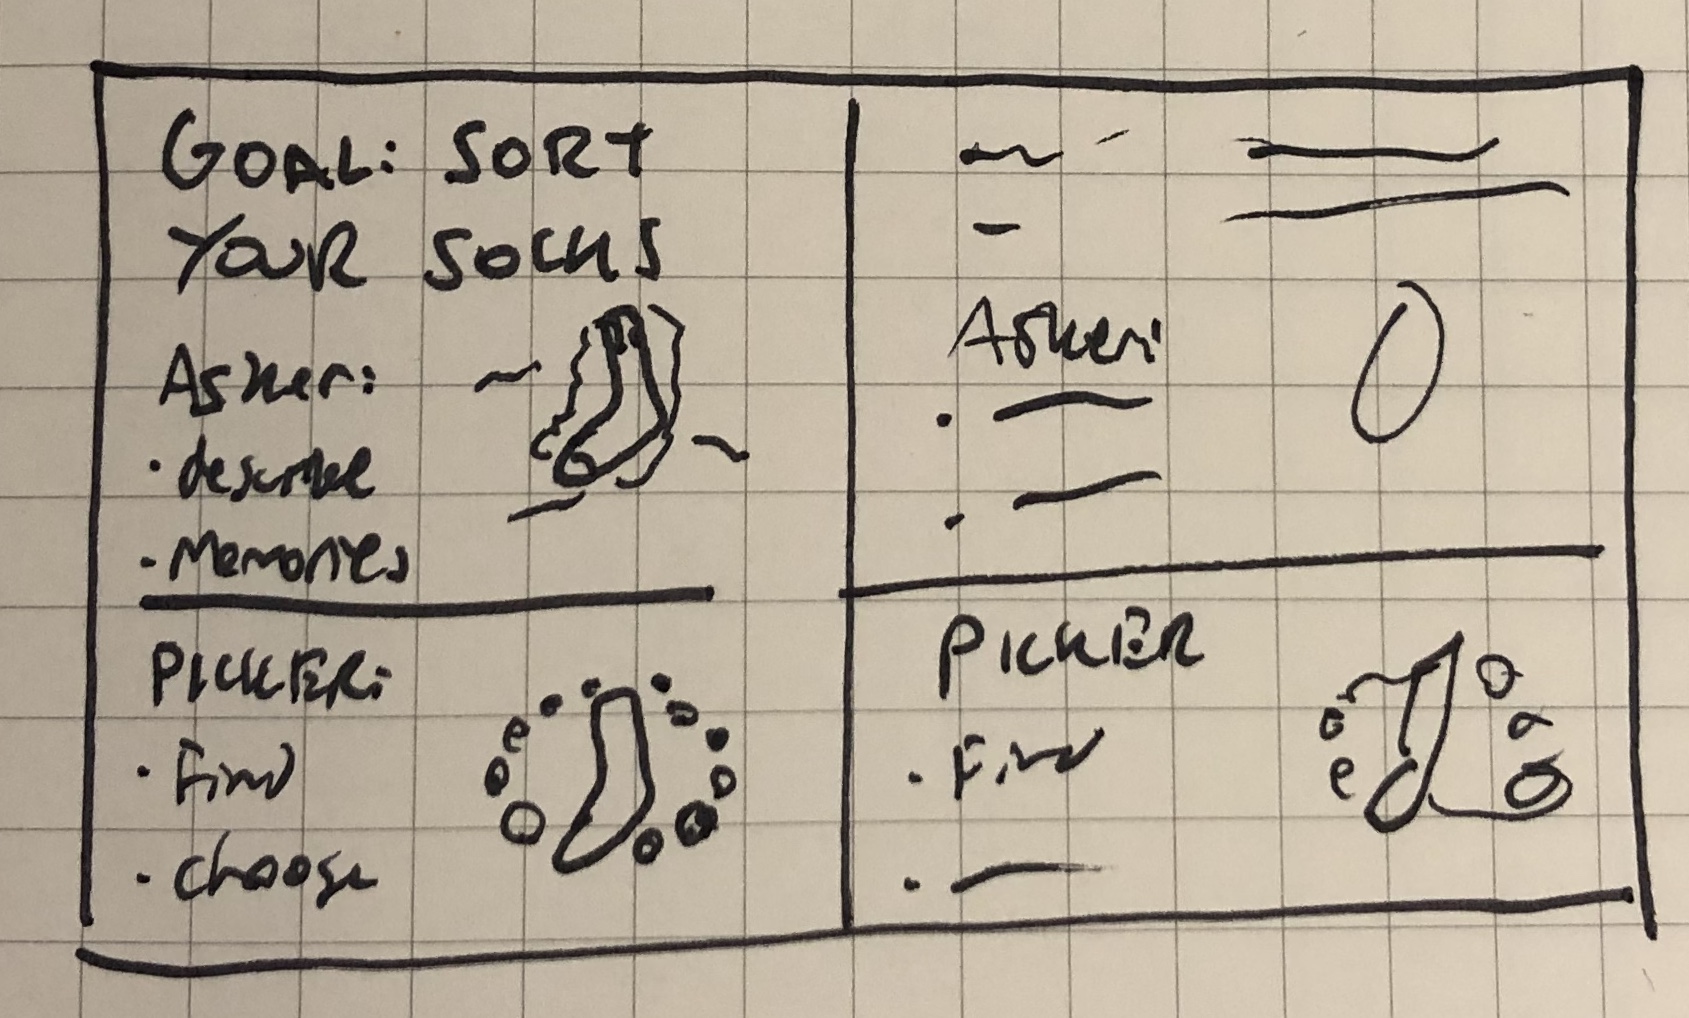 GOAL: SORT
YOUR SOCKS
Asker:
• describe
• Memories
PICKER:
• Find
• choose
Asker:
PICKER
• Find